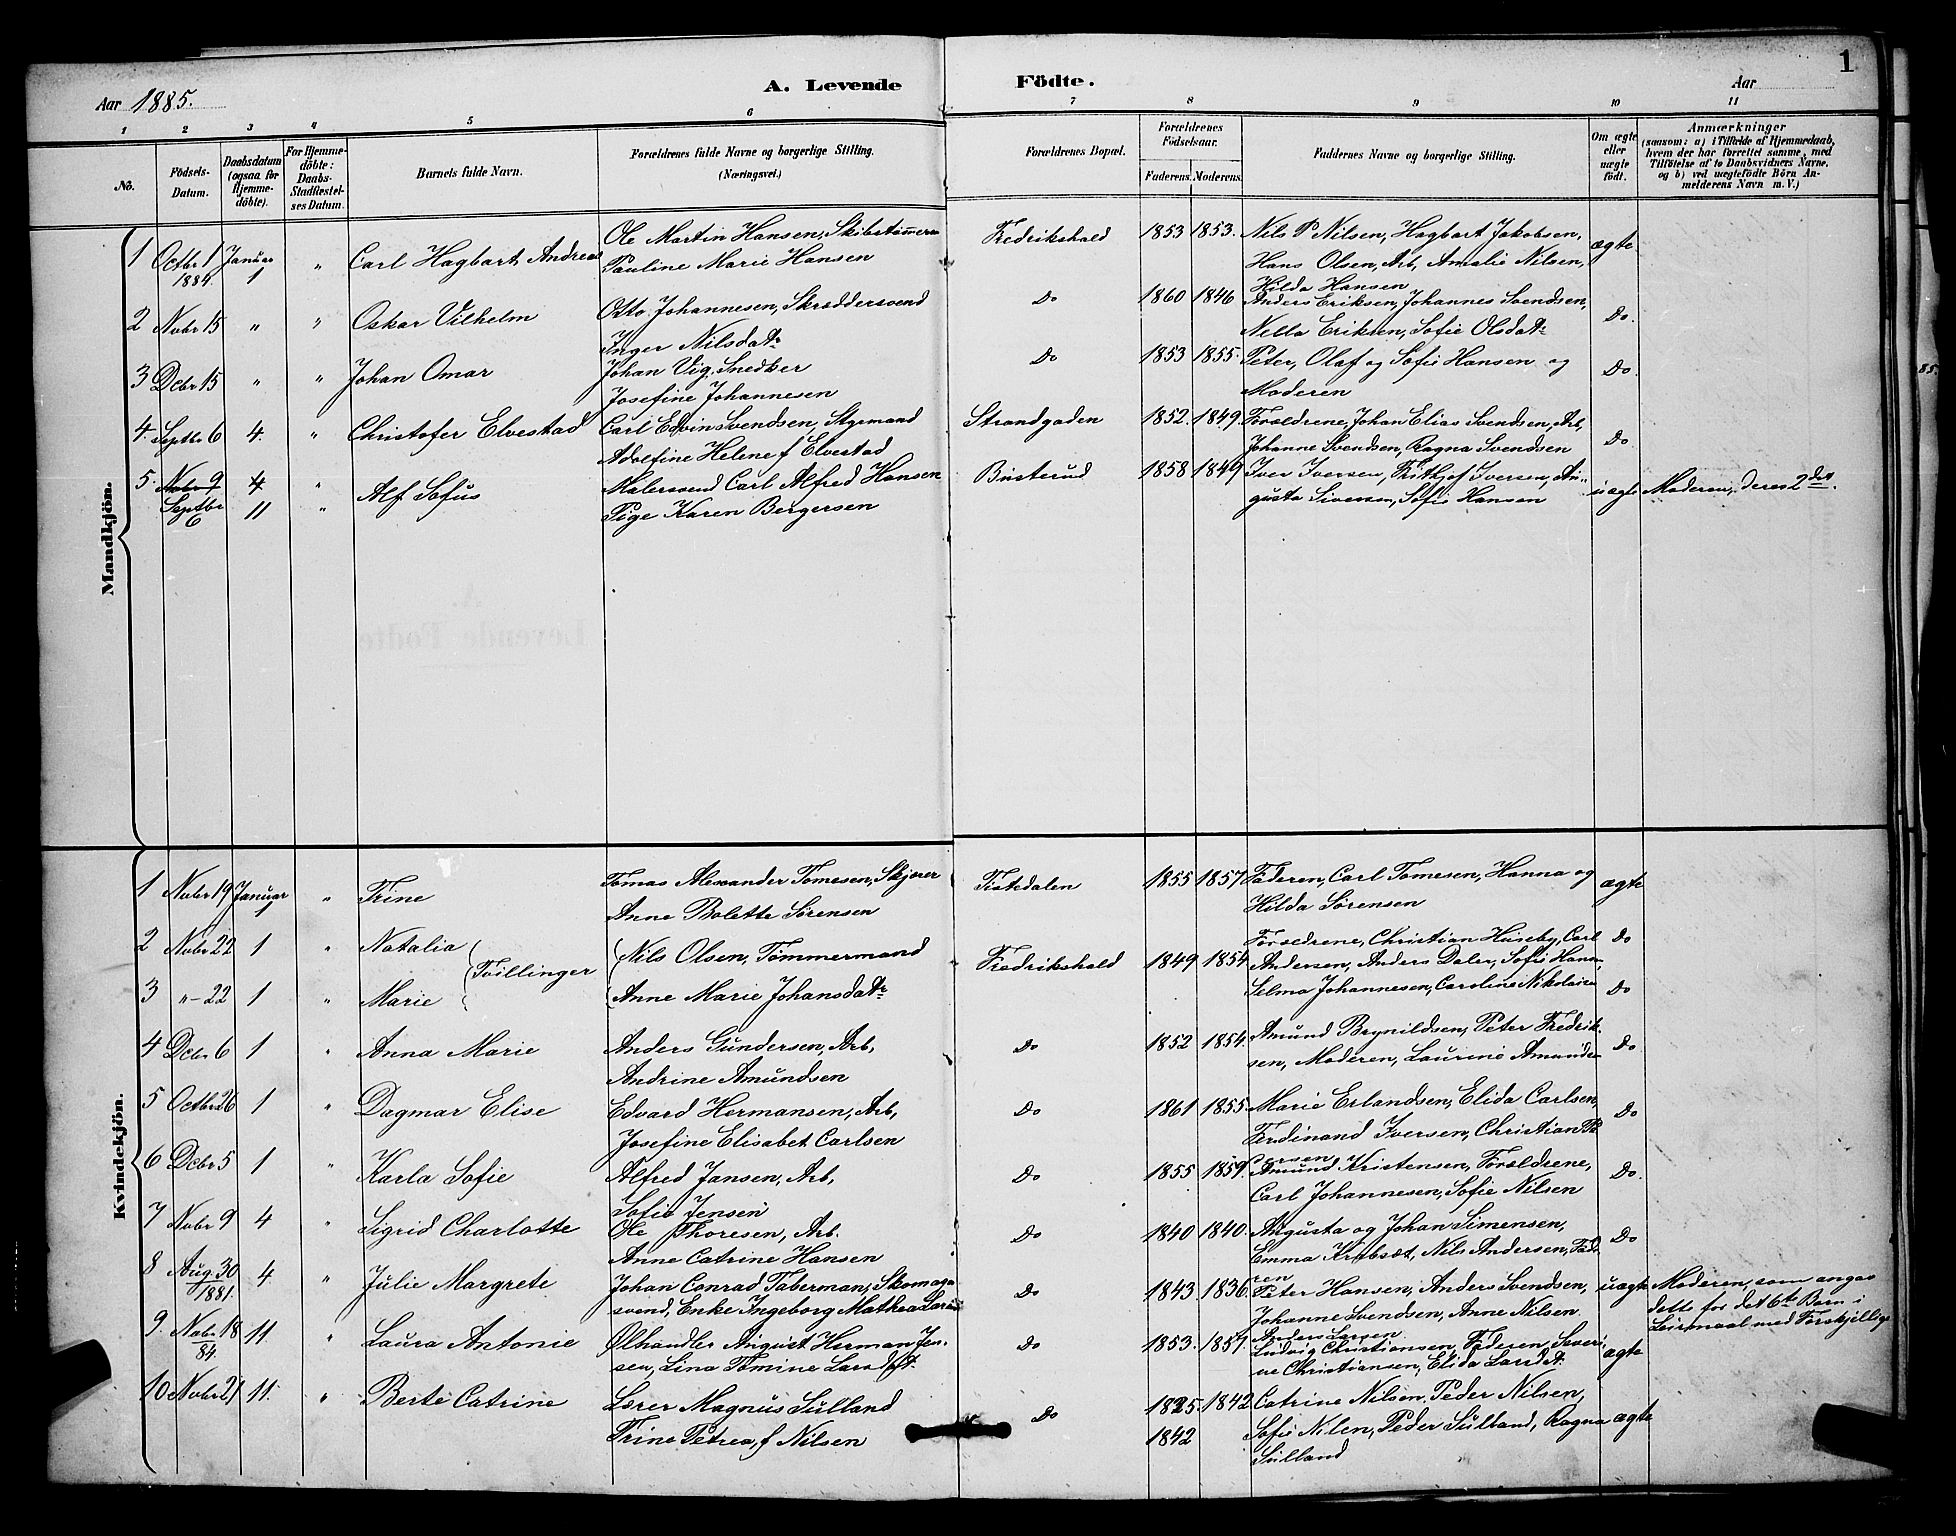 1
Aar 1885.
A. Levende
Födte.
Aar
1 2 3 4 5 6 7 8 9 10 11
No.
Födsels-Datum.
Daabsdatum (ogsaa for Hjemmedöbte).
For Hjemmedöbte: Daabs-Stadfæstelses Datum.
Barnets fulde Navn.
Forældrenes fulde Navne og borgerlige Stilling. (Næringsvei.)
Forældrenes Bopæl.
Forældrenes Födselsaar.
Faderens. Moderens.
Faddernes Navne og borgerlige Stilling.
Om ægte eller uægte födt.
Anmærkninger
(saasom: a) i Tilfælde af Hjemmedaab, hvem der har forrettet samme, med Tilföielse af to Daabsvidners Navne, og b) ved uægtefödte Börn Anmelderens Navn m. V.)
Mandkjön.
1 Octbr 1 1884. Januar 1 " Carl Hagbart Andreas Ole Martin Hansen, Skibstømrer Fredrikshald 1853 1853. Nils P Nilsen, Hagbart Jakobsen, ægte
Pauline Marie Hansen Hans Olsen, Arb, Amalie Nilsen,
Hilda Hansen
2 Nvbr 15 " " Oskar Vilhelm Otto Johannesen, Skræddersvend Do 1860 1846 Anders Eriksen, Johannes Svendsen, Do.
Inger Nilsdatr Nella Eriksen, Sofie Olsdatr
3 Dcbr 15 " " Johan Omar Johan Vig, Snedker Do 1853 1855. Peter, Olaf og Sofie Hansen og Do.
Josefine Johannesen Moderen
4. Septbr 6 4. " Christofer Elvestad Carl Edvin Svendsen, Styrmand Strandgaden 1852. 1849. Forældrene, Johan Elias Svendsen, Arb, Do
Adolfine Helene f Elvestad Johanne Svendsen, Ragna Svendsen
5 Nvbr 9 4 " Alf Sofus Malersvend Carl Alfred Hansen Busterud 1858 1849 Iver Iversen, Frithjof Iversen, Au- uægte Moderen, deres 2det.
Septbr 6 11 " Pige Karen Bergersen gusta Siversen, Sofie Hansen
Kvindekjön.
1 Nvbr 19 Januar 1 " Trine Tomas Alexander Tomesen, Skjærer Tistedalen 1855 1857 Faderen, Carl Tomesen, Hanna og ægte
Anne Bolette Sørensen Hilda Sørensen
2 Nvbr 22 1 " Natalia Tvillinger Nils Olsen, Tømmermand Fredrikshald 1849 1854 Forældrene, Christian Huseby, Carl Do
Andersen, Anders Daler, Sofie Hansn,
3 "-22 1 " Marie Anne Marie Johansdatr Selma Johannesen, Caroline Nikolaisn Do
4 Dcbr 6 1 " Anna Marie Anders Gundersen, Arb, Do 1852 1854. Amund Brynildsen, Peter Fredrik- Do.
Andrine Amundsen sen, Moderen, Laurine Amundsn
5 Octbr 26 1 " Dagmar Elise Edvard Hermansen, Arb, Do 1861 1855 Marie Erlandsen, Elida Carlsen, Do
Josefine Elisabet Carlsen Ferdinand Iversen, Christian
6 Dcbr 5 1 " Karla Sofie Alfred Jansen, Arb, Do 1855 1859. Amund Kristensen, Forældrene, Do.
Sofie Jensen Carl Johannesen, Sofie Nilsen
7 Nvbr 9 4 " Sigrid Charlotte Ole Thoresen, Arb. Do 1840 1840. Augusta og Johan Simensen, Do
Anne Catrine Hansen Emma Krabsæt, Nils Andersen, Fade-
ren
8 Aug. 30 1881. 4 " Julie Margrete Johan Conrad Taberman, Skomager Do 1843 1836 Peter Hansen, Anders Svendsen, uægte Moderen, som angav
svend, Enke Ingeborg Mathea Johanne Svendsen, Anne Nilsen dette for det 6te Barn i
Leiermaal med Forskjellige
Anders Larsen
9. Nvbr 18 84 11 " Laura Antonie Ølhandler August Herman Jen- Do 1853. 1857. Ludvig Christiansen, Faderen, Severi- ægte
sen, Lina Tomine Larsdtr ne Christiansen, Elida Larsdtr
10 Nvbr 21 11. " Berte Catrine Lærer Magnus Sulland Do 1825. 1842 Catrine Nilsen, Peder Nilsen,
Trine Petrea f Nilsen 1842 Sofie Nilen, Peder Sulland, Ragna ægte
Sulland